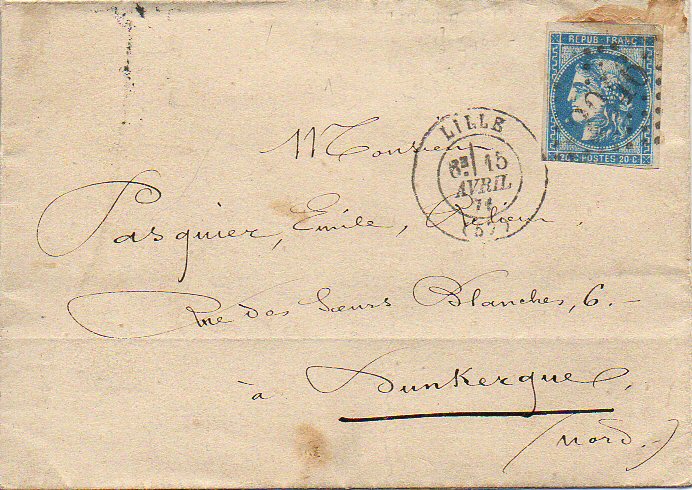 REPUB. FRANC.
20 C POSTES 20 C
LILLE
15
AVRIL
71
(57)
Monsieur
Pasquier, Emile, Relieur,
Rue des Sœurs Blanches, 6.-
à Dunkerque,
(Nord.-)